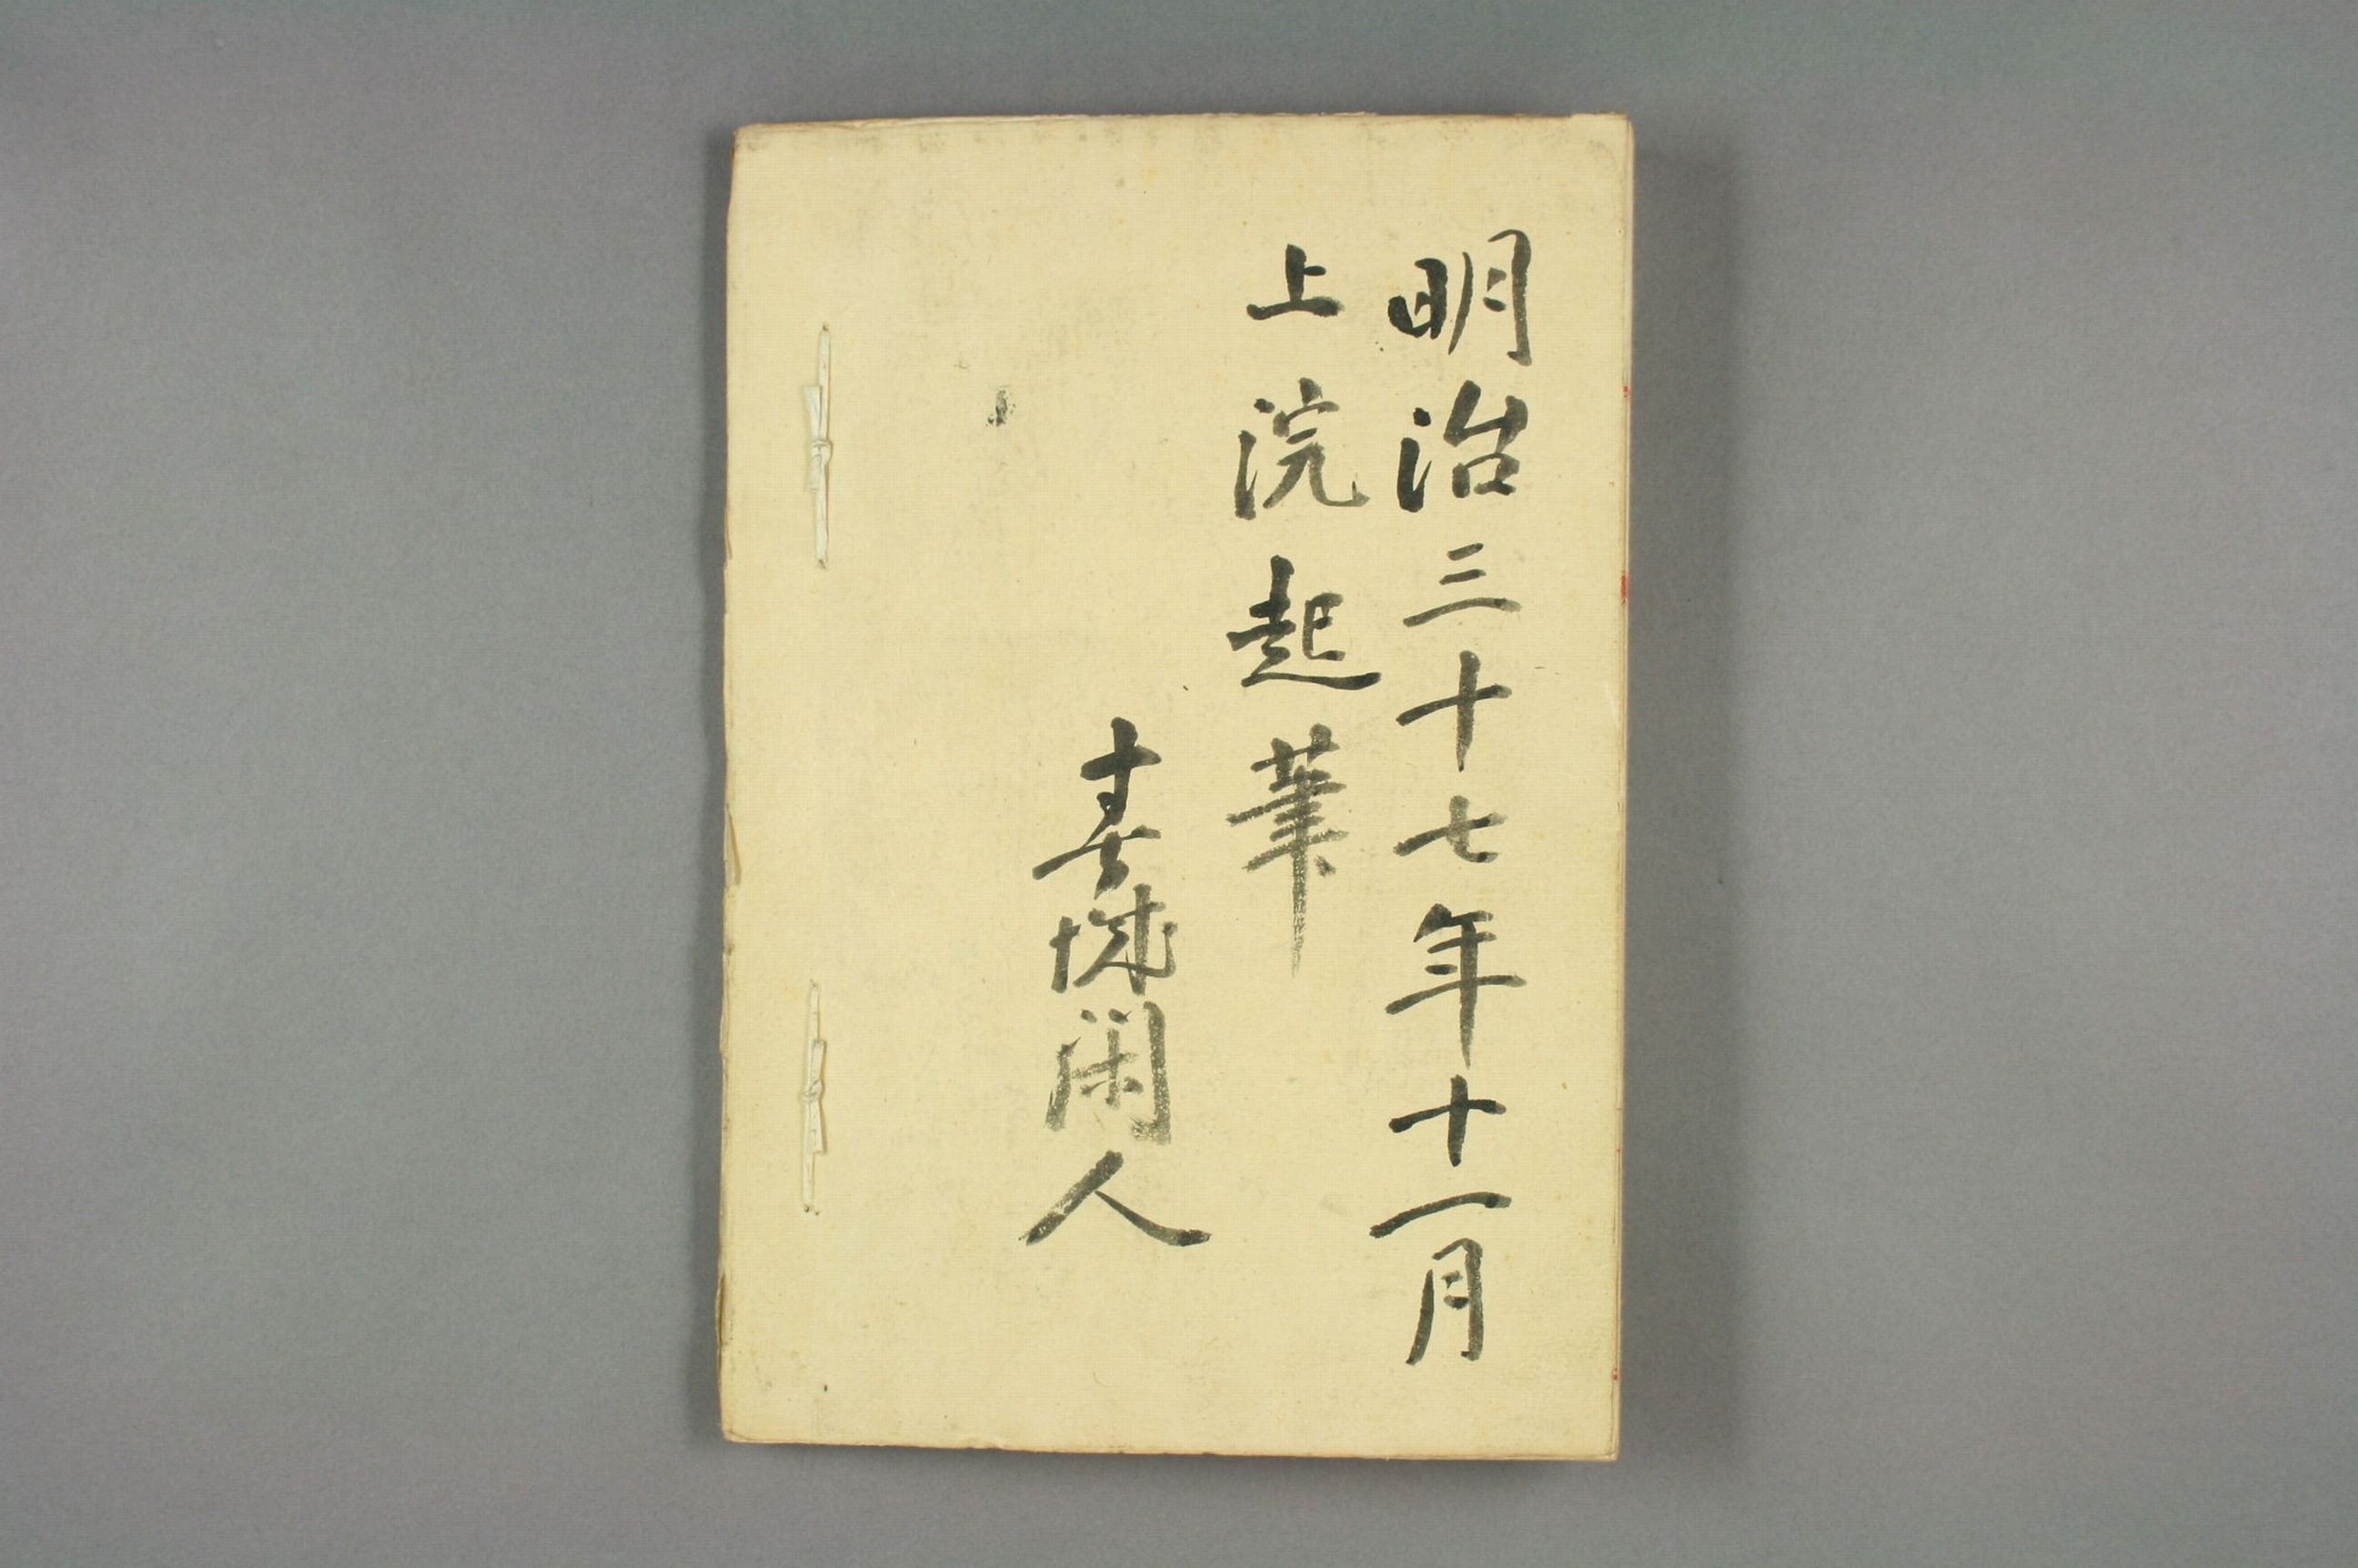 明治三十七年十一月
上浣起筆
春城閑人